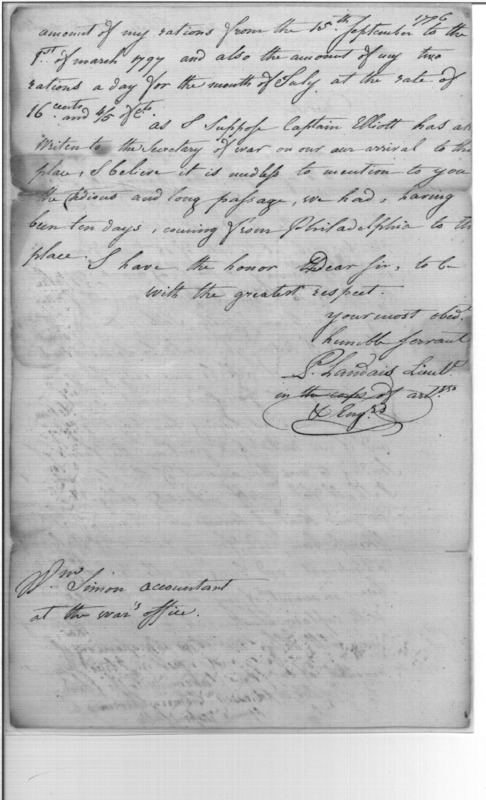 1796
amount of my rations from the 15th September to the
1st of march 1797 and also the amount of my two
rations a day for the month of July, at the rate of
16 cents and 4/5 of cts
as I Suppose Captain Elliott has
writen to the Secretary of war on our arrival to
place, I beliere it is nedless to mention to you
the tedious and long passage, we had, having
been ten days, coming from Philadelphia to
place. I have the honor Dear Sir, to be
with the greatest respect.
your most obed.
humble Servant
P. Landais Lieut.
in the corps of
& Engrs
Wm Simon accountant
at the war's office.